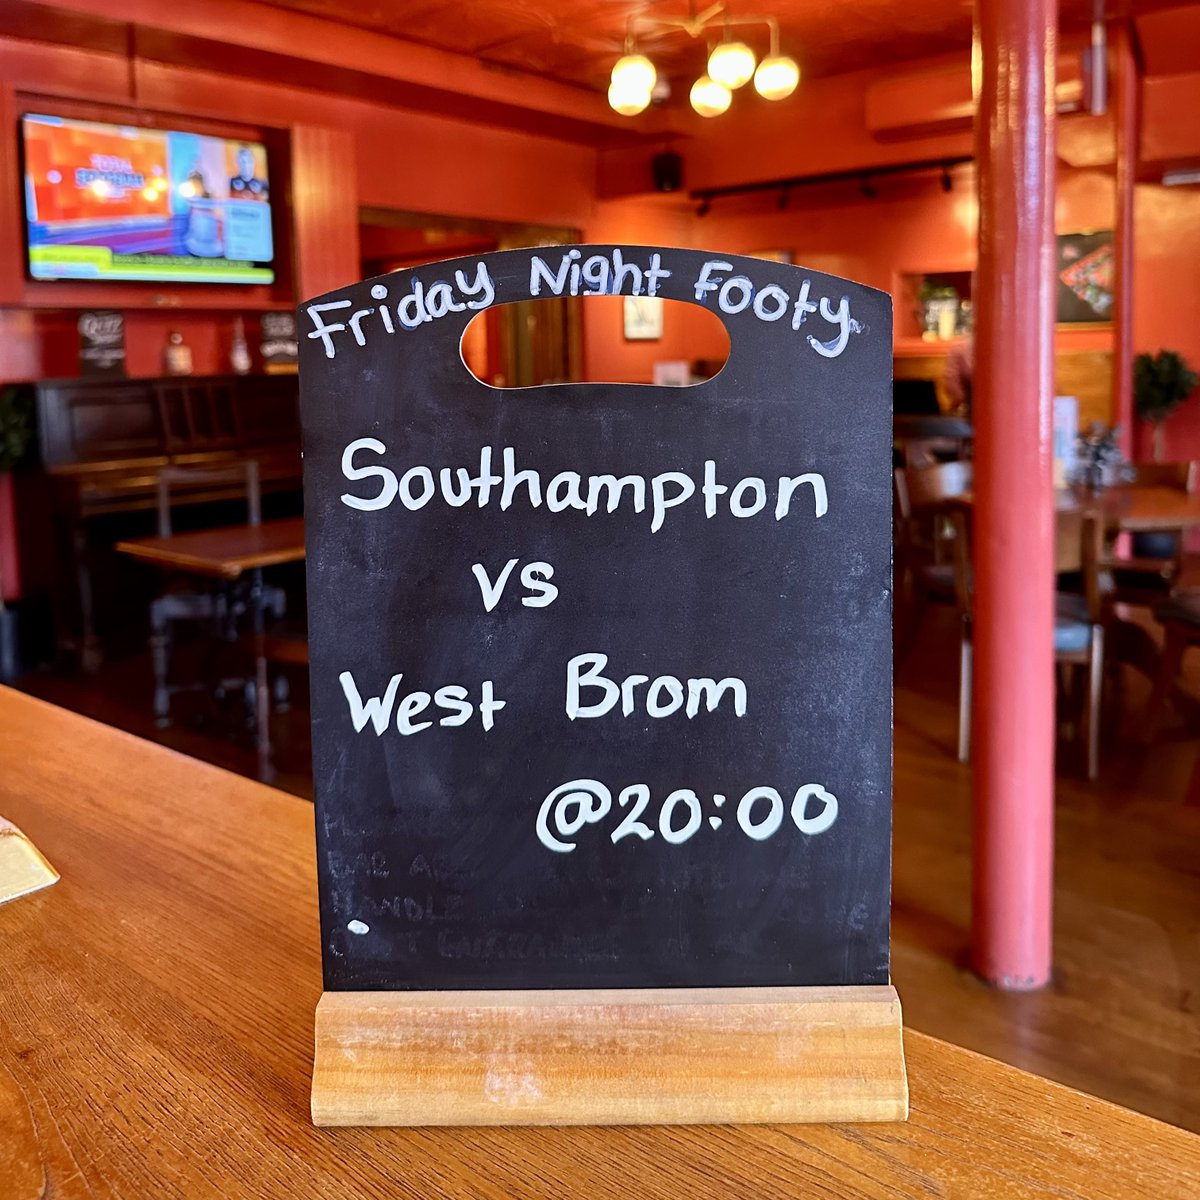 Friday Night Footy
Southampton
vs
West Brom
@20:00